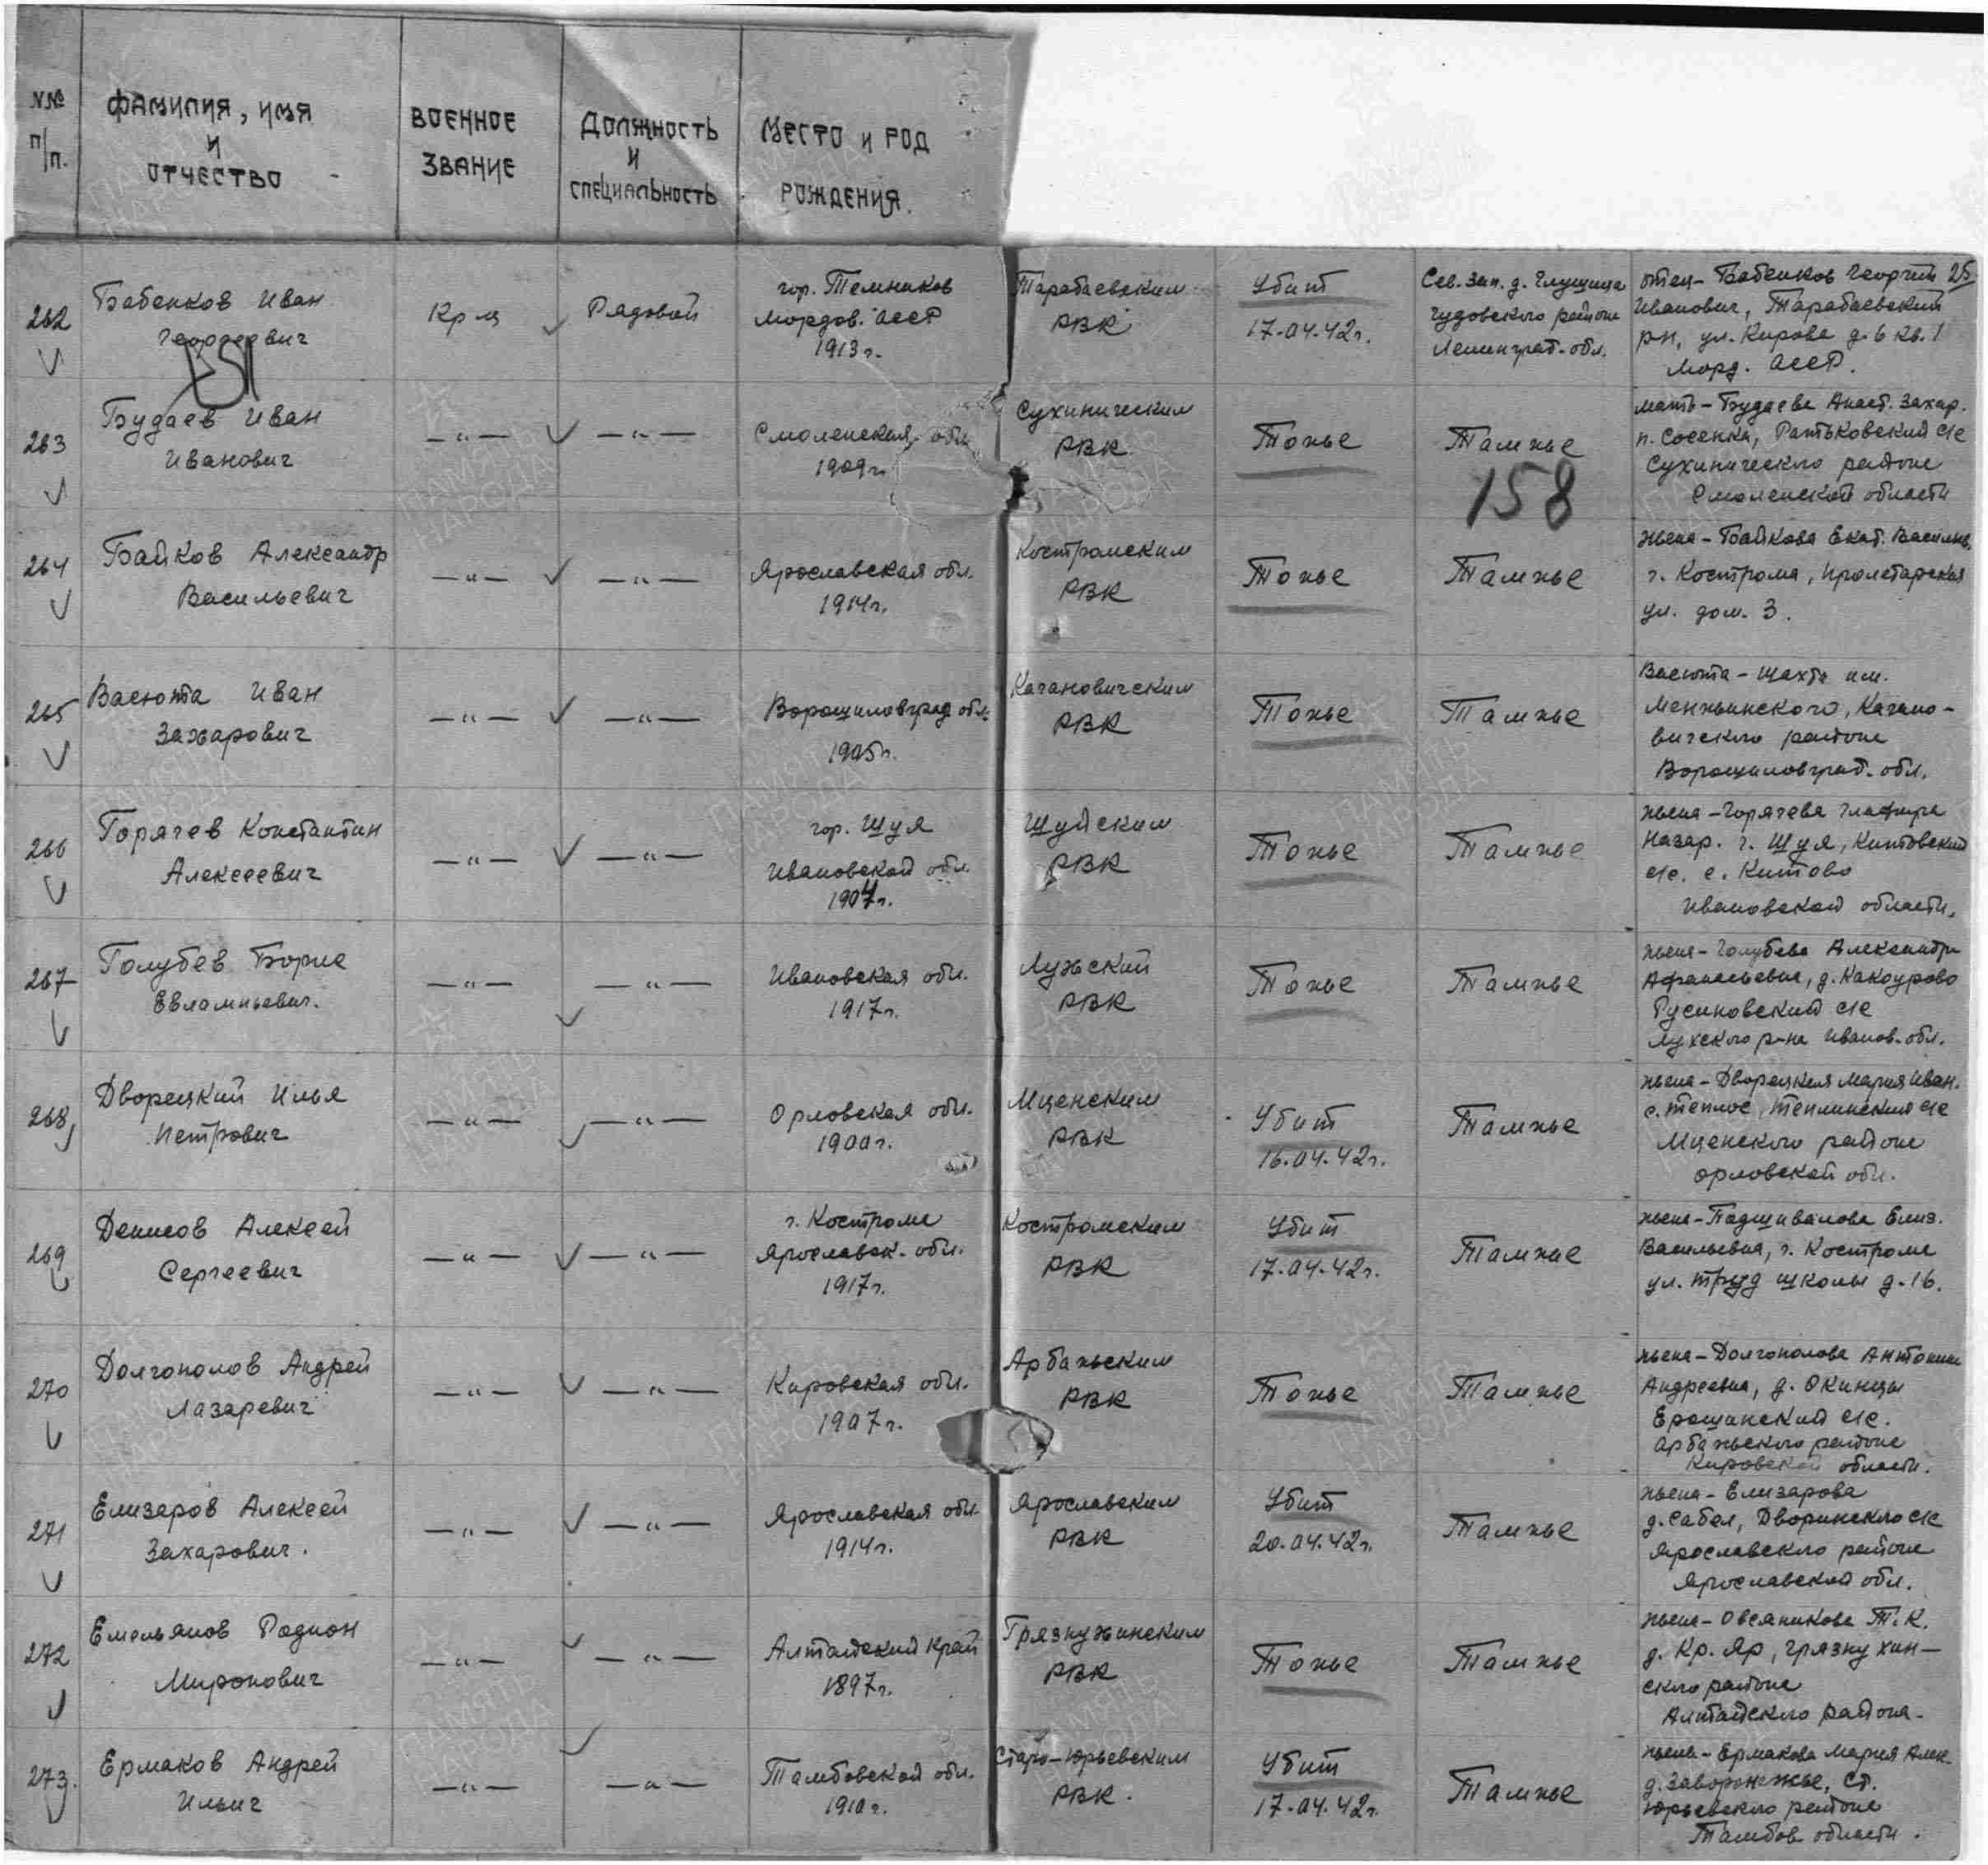 N№
п/п.
ФАМИЛИЯ, ИМЯ
И
ОТЧЕСТВО
ВОЕННОЕ
ЗВАНИЕ
ДОЛЖНОСТЬ
И
СПЕЦИАЛЬНОСТЬ
МЕСТО И ГОД
РОЖДЕНИЯ.
25
262
Бабенков Иван
Георгиевич
Кр-ц
Рядовой
гор. Темников
Мордов. АССР
1913г.
Тарабаевским
РВК
Убит
17.04.42г.
Сев. зап. д. Глушица
Чудовского района
Ленинград. обл.
отец - Бабенков Георгий
Иванович, Тарабаевский
р-н, ул. Кирова д. 6 кв. 1
Морд. АССР.
263
Будаев Иван
Иванович
—"—
—"—
Смоленская обл
1909г.
Сухиническим
РВК
Тоже
Там же
158
мать - Будаева Анаст. Захар.
п. Сосенка, Ратьковский с/с
Сухинического района
Смоленской области
264
Байков Александр
Васильевич
—"—
—"—
Ярославская обл.
1914г.
Костромским
РВК
Тоже
Там же
жена - Байкова Екат. Васильев.
г. Кострома, Пролетарская
ул. дом. 3.
265
Васюта Иван
Захарович
—"—
—"—
Ворошиловград обл.
1905г.
Кагановическим
РВК
Тоже
Там же
Васюта - Шахта им.
Менжинского, Кагано-
вичского района
Ворошиловград. обл.
266
Горячев Константин
Алексеевич
—"—
—"—
гор. Шуя
Ивановской обл.
1904г.
Шуйским
РВК
Тоже
Там же
жена - Горячева Глафира
Назар. г. Шуя, Китовский
с/с. с. Китово
Ивановской области.
267
Голубев Борис
Евлампьевич.
—"—
—"—
Ивановская обл.
1917г.
Лужский
РВК
Тоже
Там же
жена - Голубева Александра
Афанасьевна, д. Какоурово
Русиновский с/с
Лухского р-на Иванов. обл.
268
Дворецкий Илья
Петрович
—"—
—"—
Орловская обл.
1900г.
Мценским
РВК
Убит
16.04.42г.
Там же
жена - Дворецкая Мария Иван.
с. Теплое, Теплинский с/с
Мценского района
Орловской обл.
269
Денисов Алексей
Сергеевич
—"—
—"—
г. Кострома
Ярославск. обл.
1917г.
Костромским
РВК
Убит
17.04.42г.
Там же
жена - Подшивалова Елиз.
Васильевна, г. Кострома
ул. Труд школы д. 16.
270
Долгополов Андрей
Лазаревич
—"—
—"—
Кировская обл.
1907г.
Арбажским
РВК
Тоже
Там же
жена - Долгополова Антонина
Андреевна, д. Окинцы
Ерошинский с/с.
Арбажского района
Кировской области.
271
Елизаров Алексей
Захарович.
—"—
—"—
Ярославская обл.
1914г.
Ярославским
РВК
Убит
20.04.42г.
Там же
жена - Елизарова
д. Сабел, Дворинского с/с
Ярославского района
Ярославской обл.
272
Емельянов Родион
Миронович
—"—
—"—
Алтайский край
1897г.
Грязнухинским
РВК
Тоже
Там же
жена - Овсяникова Т. К.
д. Кр. Яр, Грязнухин-
ского района
Алтайского района.
273.
Ермаков Андрей
Ильич
—"—
—"—
Тамбовской обл.
1910г.
Старо-Юрьевским
РВК.
Убит
17.04.42г.
Там же
жена - Ермакова Мария Алек.
д. Заворонежье, Ст.
Юрьевского района
Тамбов области.